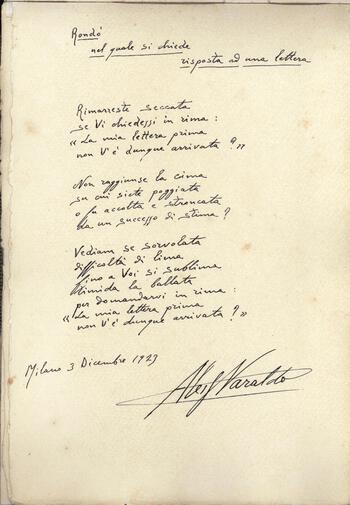 Rondò
nel quale si chiede
risposta ad una lettera
Rimarreste seccata
se Vi chiedessi in rima:
«La mia lettera prima
non V'è dunque arrivata?»
Non raggiunse la cima
su cui siete poggiata
o fu accolta e stroncata
da un successo di stima?
Vediam se sorvolata
difficoltà di lima
fino a Voi si sublima
timida la ballata
per domandarvi in rima:
«La mia lettera prima
non V'è dunque arrivata?»
Milano 3 Dicembre 1923
Varaldo